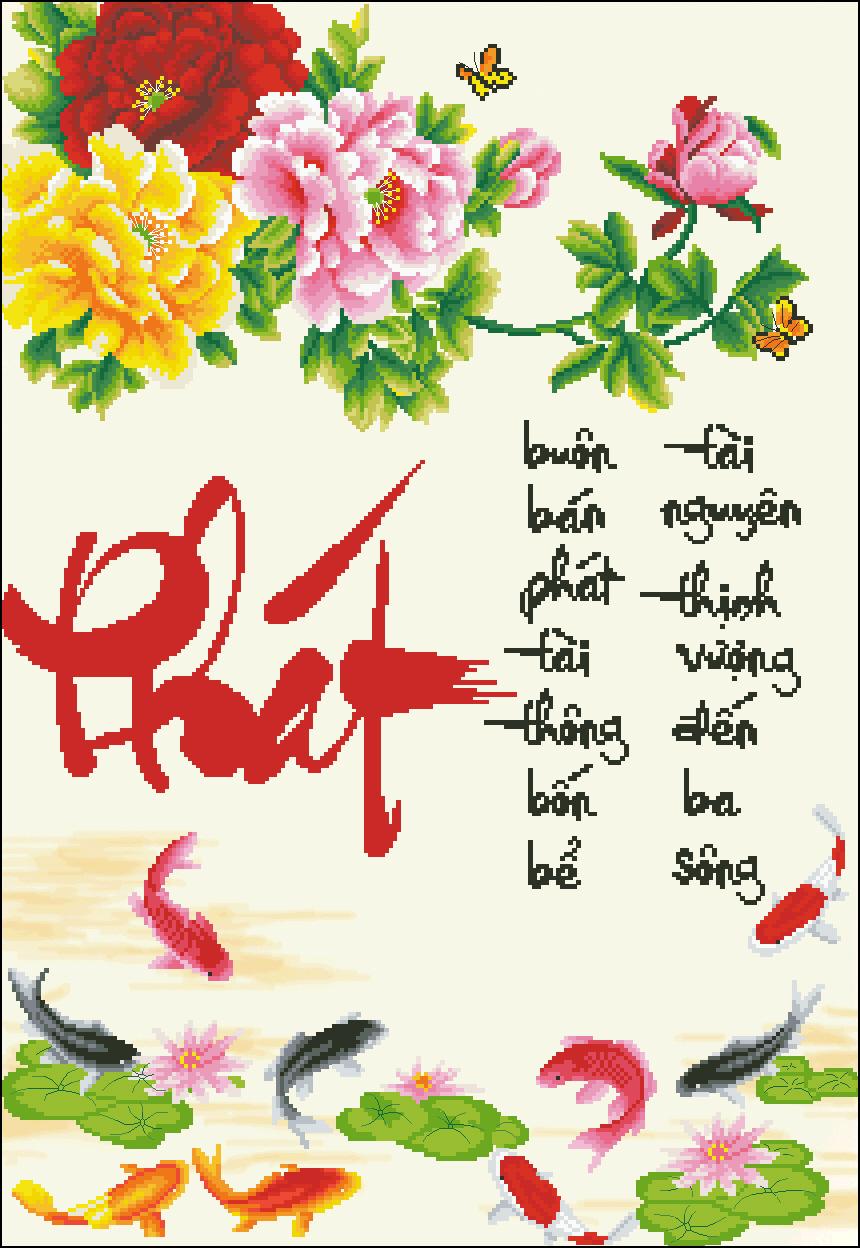 Phát
buôn
bán
phát
tài
thông
bốn
bể
tài
nguyên
thịnh
vượng
đến
ba
sông